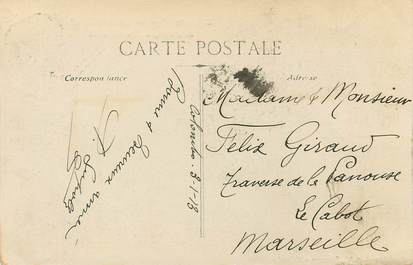 CARTE POSTALE
Correspondance
Adresse
Colombo 3-1-13
Bonne & heureuse année
Madame & Monsieur
Félix Giraud
Traverse de la Panouse
Le Cabot
Marseille